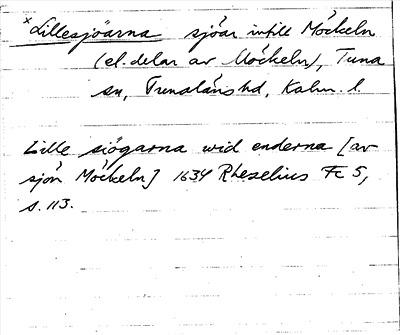 x Lillesjöarna sjöar intill Möckeln
(el. delar av Möckeln), Tuna
sn, Tunaläns hd, Kalm. l.
Lille siögarna wid enderna [av
sjön Möckeln] 1634 Rhezelius Fc 5,
s. 113.